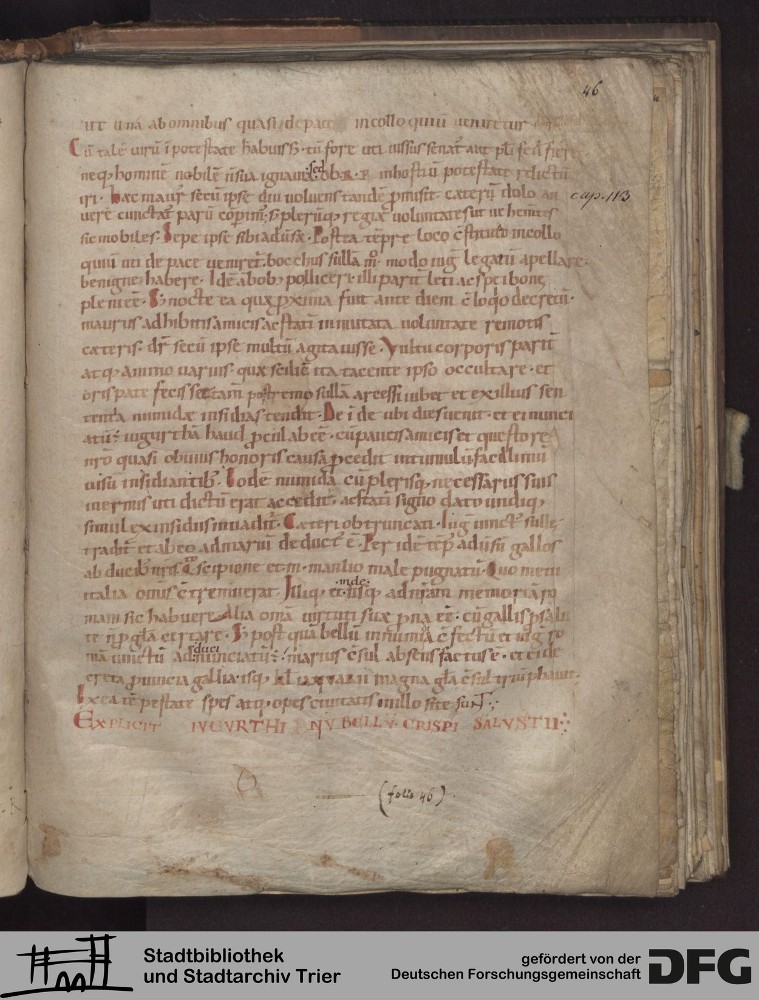 46
ut una ab omnibus quasi de pace in colloquiū ueniretur
Cū talē uirū ī potestate habuiss&. tū fore uti iussu senat aut pli fed fier
neq; hominē nobilē sua ignauia sed ob r. p. in hostiū potestate relictū
iri. haec maur secū ipse diu uoluens tandē pmisit. caeterū dolo an
cap. 113
uere cunctat parū cōperim. s plerūq; regiae uoluntates ut uehemtes
sic mobiles. Sepe ipse sibi aduersae. Postea tēpre loco cstituto in collo
quiū uti de pace uenir&. bocchus sulla m̊. modo iug legatū apellare.
benigne habere. Idē abob; polliceri. illi parit leti ac spei bone
pleni ēe. S nocte ea quae pxima fuit ante diem cloqio decretū.
maurus adhibitis amicis ac statī inmutata uoluntate remotis
cæteris. dr̄ secū ipse multū agitauisse. Vultu corporis parit
atq; animo uarius. quae scilic& ita tacente ipso occultare. et
oris pate fecisse tam postremo sullā arcessi iubet et ex illius sen
tentia numidae insidias tendit. De ī de ubi dies uenit. et ei nunci
atū: iugurthā haud pcul ab ēe. cū paucis amicis et questore
nr̄o quasi obuius honoris causa pcedit in tumulū facillimū
uisu insidiantib. Eodē numida cū plerisq; necessariis suis
inermis uti dictū erat accedit. ac statī signo dato undiq;
simul ex insidiis inuadit. Caeteri obtruncati. Iug uinct sulle
tradit et ab eo ad mariū deduct ē. Per idē tēp aduersū gallos
ab ducib nris Q scipione et m. manlio male pugnatū. Quo metu
italia omis ctremuerat. Illiq; et inde usq; ad nr̄am memoriā ro
mani sic habuere. Alia omia uirtuti suae prona ēe. cū gallis p salu
te n p gla certare. S post quā bellū in numia cfectū et iug ro
mā uinctū adduci nunciatū: marius csul absens factus ē. et ei de
creta puincia gallia. isq; kl ianuarii magna gla csul triūphauit.
Ex ea tēpestate spes atq; opes ciuitatis in illo site sunt.
EXPLICIT IVGVRTHINV BELLV. CRISPI SALVSTII
(folia 46)
Stadtbibliothek
und Stadtarchiv Trier
gefördert von der
Deutschen Forschungsgemeinschaft
DFG